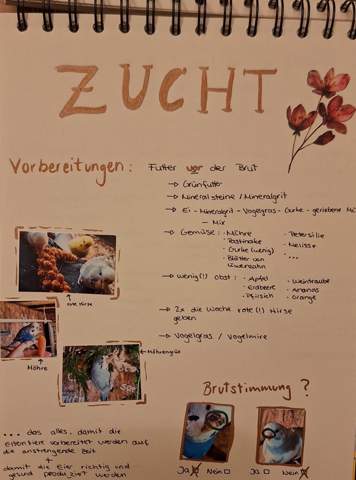 ZUCHT
Vorbereitungen: Futter vor der Brut
→ Grünfutter
→ Mineralsteine / Mineralgrit
→ Ei - Mineralgrit - Vogelgras - Gurke - geriebene Mö
- Mix
→ Gemüse: · Möhre · Petersilie
· Pastinake · Melisse
· Gurke (wenig) · ...
· Blätter von
Löwenzahn
→ wenig(!) Obst: · Apfel · Weintraube
· Erdbeere · Ananas
· Pfirsich · Orange
→ 2x die Woche rote(!) Hirse
geben
→ Vogelgras / Vogelmiere
rote Hirse
Möhre
Möhrengrün
Brutstimmung?
... das alles, damit die
Elterntiere vorbereitet werden auf
die anstrengende Zeit
+
damit die Eier richtig und
gesund produziert werden
Ja Nein Ja Nein